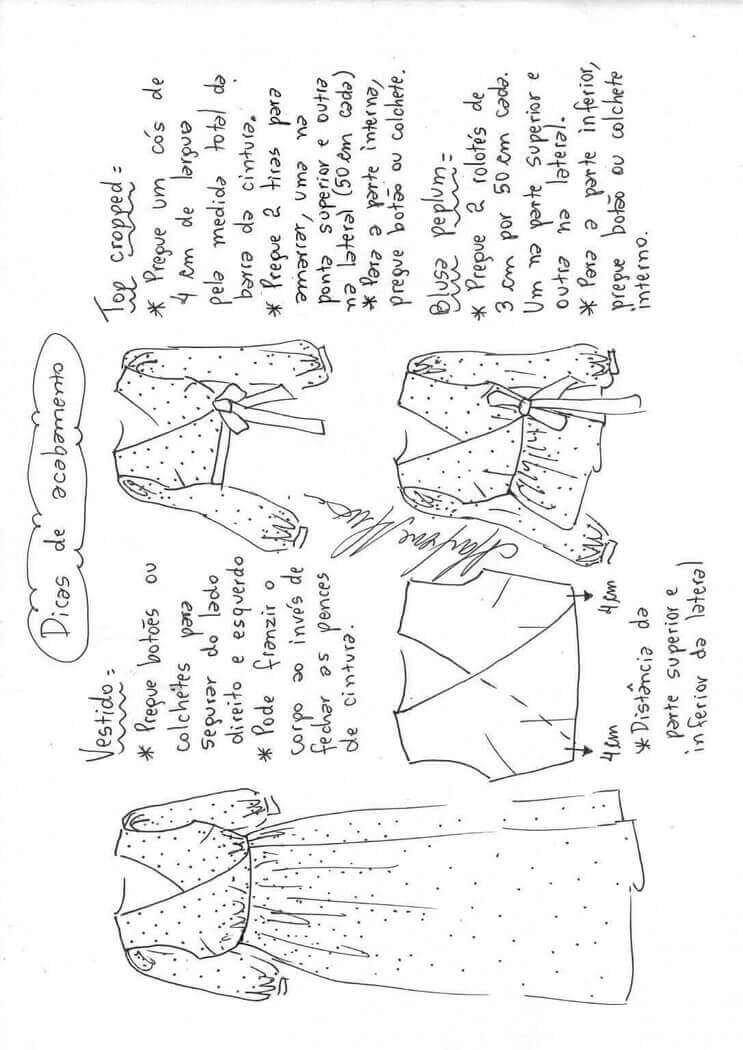 Dicas de acabamento
Vestido =
* Pregue botões ou
colchetes para
segurar do lado
direito e esquerdo
* Pode franzir o
corpo ao invés de
fechar as pences
de cintura.
4 cm
4 cm
* Distância da
parte superior e
inferior da lateral
Top cropped =
* Pregue um cós de
4 cm de largua
pela medida total da
barra da cintura.
* Pregue 2 tiras para
amarrar, uma na
ponta superior e outra
na lateral (50 cm cada)
* Para a parte interna,
pregue botão ou colchete.
Blusa peplum =
* Pregue 2 rolotés de
3 cm por 50 cm cada.
Um na parte superior e
outra na lateral.
* Para a parte inferior,
pregue botão ou colchete
interno.